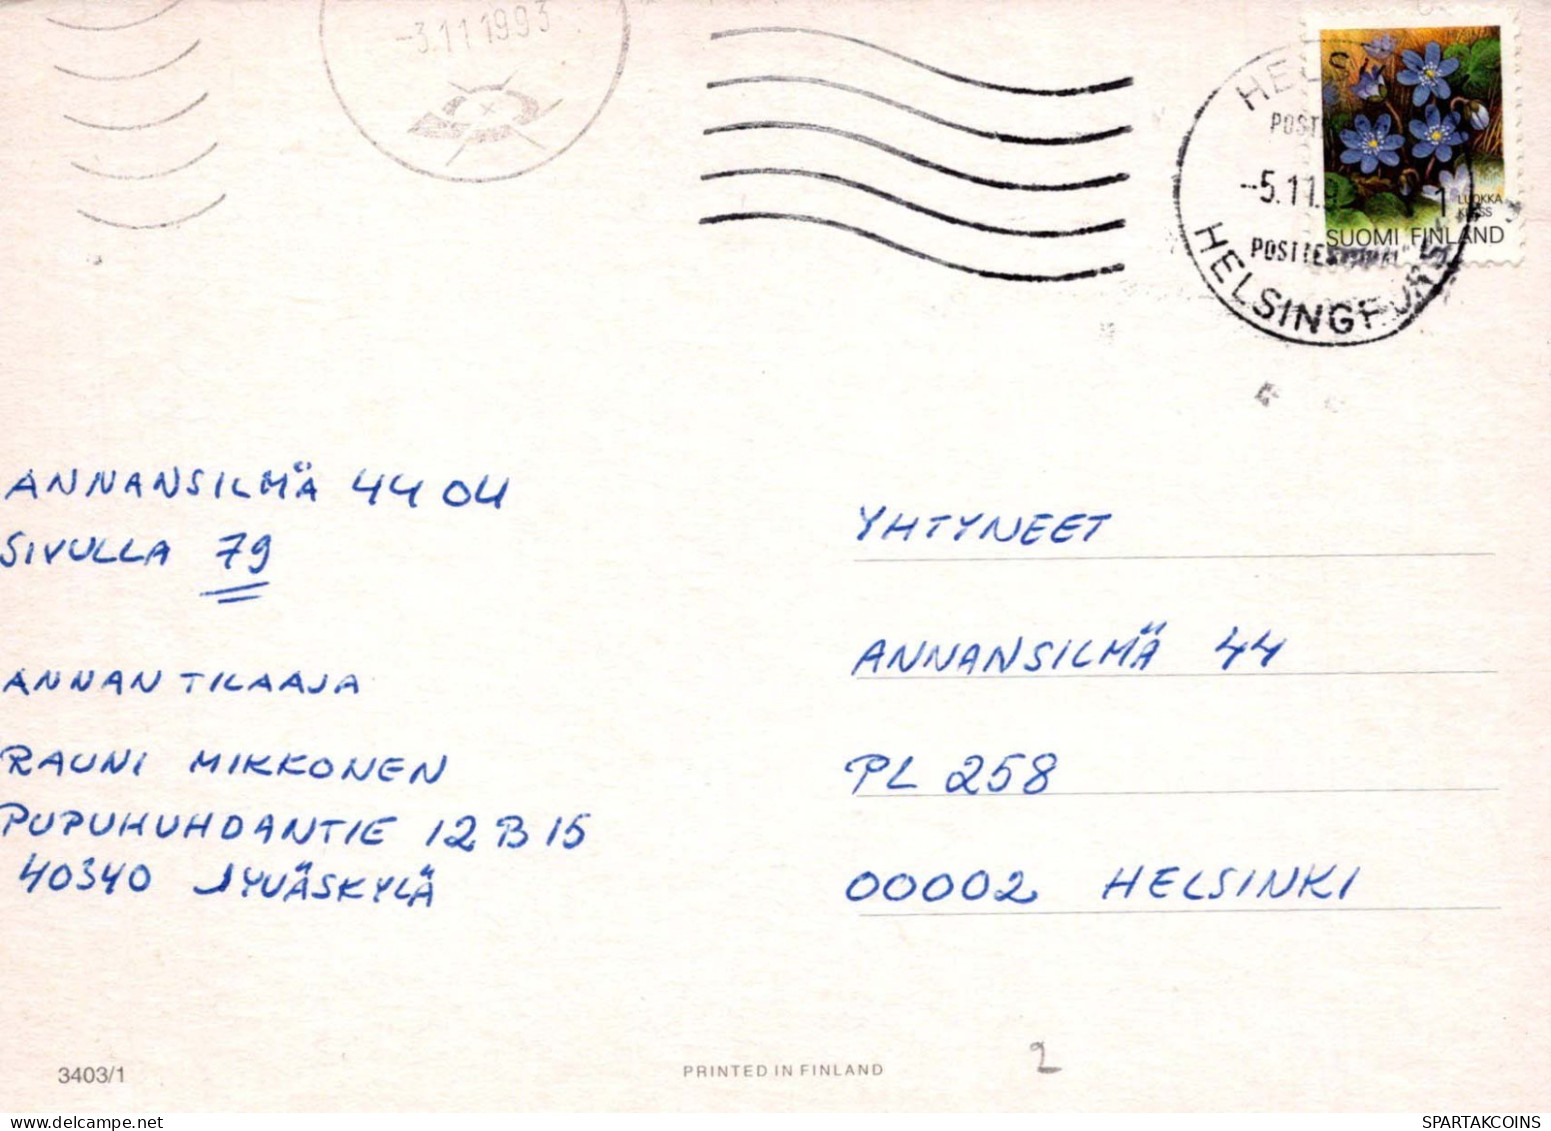 -3.11 1993
HELS
POST
--5.11.9
POSTTE
HELSINGFORS
1 LUOKKA
KLASS
SUOMI FINLAND
ANNANSILMÄ 44 04
SIVULLA 79
ANNAN TILAAJA
RAUNI MIKKONEN
PUPUHUHDANTIE 12 B 15
40340 JYVÄSKYLÄ
YHTYNEET
ANNANSILMÄ 44
PL 258
00002 HELSINKI
3403/1
PRINTED IN FINLAND
2
delcampe.net
SPARTAKCOINS